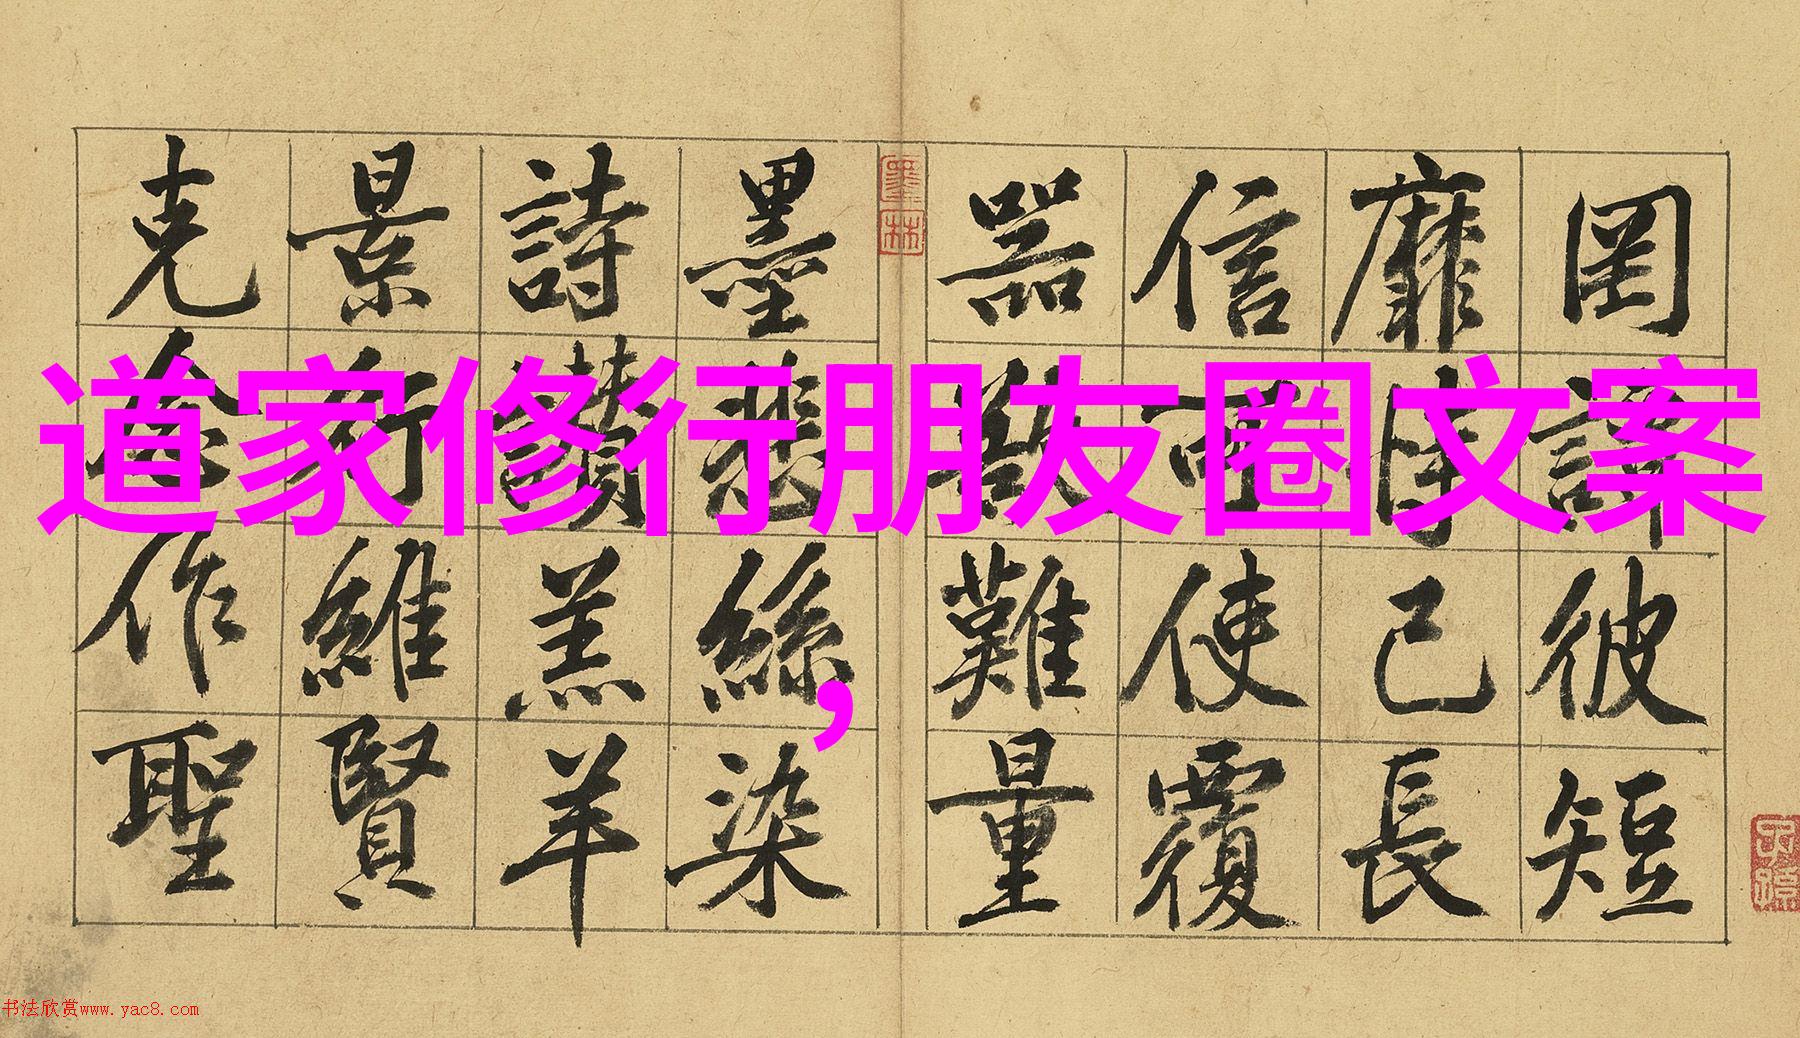 罔談彼短
靡恃己長
信可使覆
器欲難量
墨林
墨悲絲染
詩讚羔羊
景行維賢
克念作聖
道家修行朋友圈文案
,
书法欣赏www.yac8.com